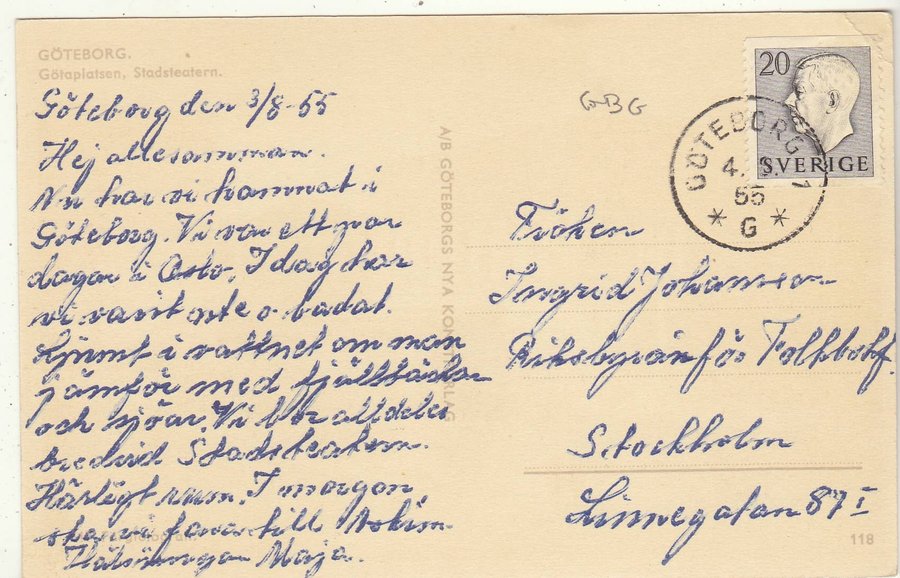 GÖTEBORG.
Götaplatsen, Stadsteatern.
Göteborg den 3/8-55
Hej allesamman.
Nu har vi hamnat i
Göteborg. Vi var ett par
dagar i Oslo. I dag har
vi varit ute o. badat.
Ljumt i vattnet om man
jämför med fjällbäckar
och sjöar. Vi bor alldeles
bredvid Stadsteatern.
Härligt rum. I morgon
ska vi fara till Askim
Hälsningar Maja.
A/B GÖTEBORGS NYA KONSTFÖRLAG
GBG
20
SVERIGE
GÖTEBORG 1
4.
55
* G *
Fröken
Ingrid Johansson
Riksbyrån för Folkbokf.
Stockholm
Linnegatan 87 I
118